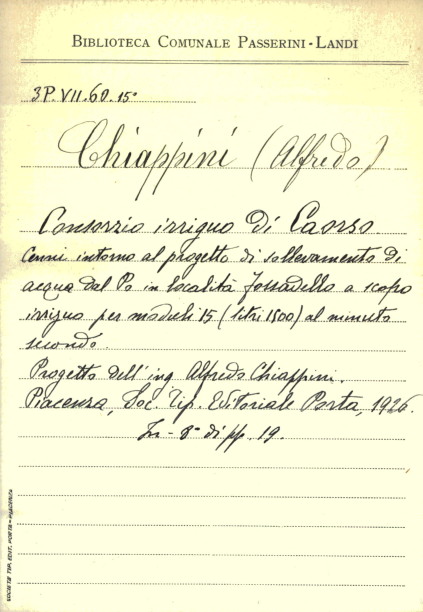 BIBLIOTECA COMUNALE PASSERINI-LANDI
3P.VII.60.15°
Chiappini (Alfredo)
Consorzio irriguo di Caorso.
Cenni intorno al progetto di sollevamento di
acqua dal Po in località Fossadello a scopo
irriguo per moduli 15 (litri 1500) al minuto
secondo.
Progetto dell'ing. Alfredo Chiappini.
Piacenza, Soc. Tip. Editoriale Porta, 1926.
In-8° di pp. 19.
SOCIETÀ TIP. EDIT. PORTA-PIACENZA